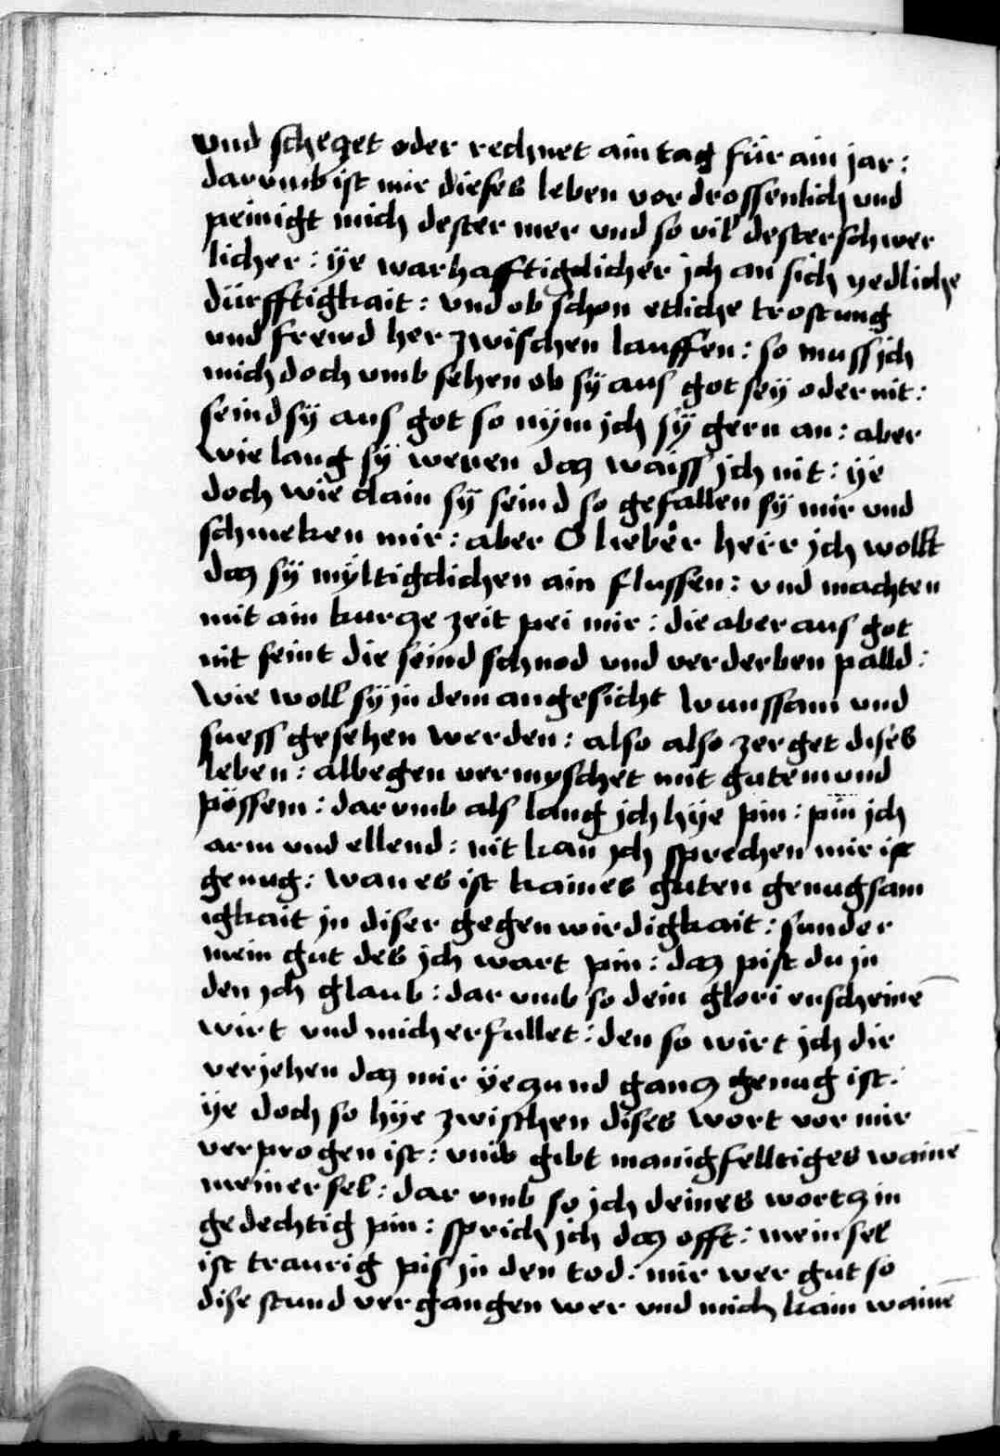 vnd scheczet oder rechnet ain tag für ain jar :
darvmb ist mir dieses leben vordrossenlich vnd
peinigt mich dester mer vnd so vil desterschwer
licher : ÿe warhafftigclicher jch an sich yedliche
dürfftigkait : vnd ob schon etliche trostung
vnd frewd her zwischen lauffen : so muss jch
mich doch vmb sehen ob sÿ aus got seÿ oder nit :
seind sÿ aus got so nÿm jch sÿ gern an : aber
wie lang sÿ weren daz waiss jch nit : ÿe
doch wie clain sÿ seind so gefallen sÿ mir vnd
schmeken mir : aber O lieber herr jch wollt
daz sÿ mÿltigclichen ain flussen : vnd machten
mit ain kurcze zeit pei mir : die aber aus got
nit seint die seind schnod vnd verderben palld :
wie woll sÿ jn dem angesicht wunssam vnd
suess gesehen werden : also also zerget dises
leben : albegen vermyschet mit gutem vnd
pössem : darvmb als lang jch hÿe pin : pin jch
arm vnd ellend : nit kan jch sprechen mir ist
genug : wan es ist kaines guten genugsam
igkait jn diser gegenwirdigkait : sunder
mein gut des jch wart pin : daz pist du jn
den jch glaub : dar vmb so dein glori enscheinē
wirt vnd mich erfullet : den so wirt jch dir
verjehen daz mir ÿeczund gancz genug ist :
ÿe doch so hÿe zwischen dises wort vor mir
verprogen ist : vnd gibt manigfelltiges wainē
meiner sel : dar vmb so jch deines wortz in
gedechtig pin : sprich jch daz offt : mein sel
ist traurig pis jn den tod : mir wer gut so
dise stund vergangen wer vnd mich kain wainē